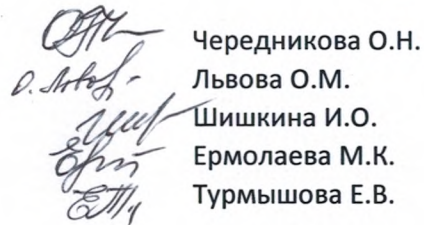 Чередникова О.Н.
Львова О.М.
Шишкина И.О.
Ермолаева М.К.
Турмышова Е.В.